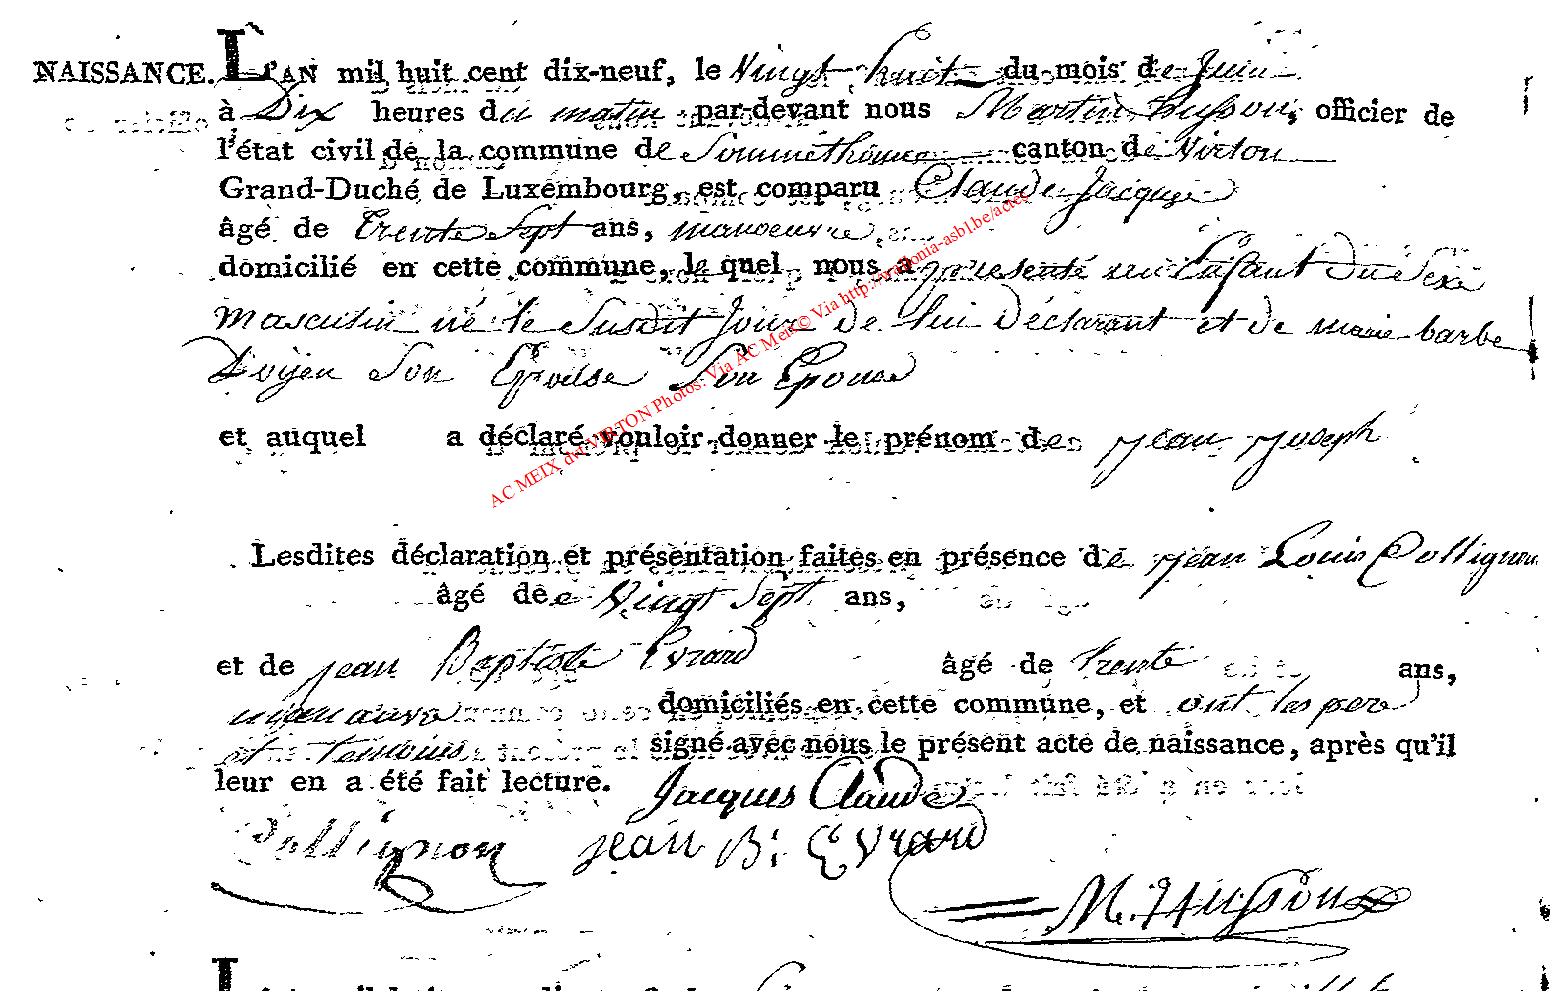 NAISSANCE. L'AN mil huit cent dix-neuf, le Vingt huit du mois de Juin
à Dix heures du matin par-devant nous Martin husson, officier de
l'état civil de la commune de Sommethonne canton de Virton
Grand-Duché de Luxembourg, est comparu Claude Jacques
âgé de trente Sept ans, manoeuvre
domicilié en cette commune, le quel nous a présenté un Enfant du Sexe
masculin né le Susdit Jour de lui Déclarant et de marie barbe
Doyen Son Epouse Son Epouse
et auquel a déclaré vouloir donner le prénom de jean joseph
Lesdites déclaration et présentation faites en présence de jean Louis Collignon
âgé de Vingt Sept ans,
et de jean Baptiste Evrard âgé de trente ans,
domiciliés en cette commune, et ont les pere
et temoins signé avec nous le présent acte de naissance, après qu'il
leur en a été fait lecture. Jacques Claude
Collignon jean B. Evrard
M. Husson
AC MEIX dvt VIRTON Photos. Via AC Meix © Via http://wallonia-asbl.be/actes